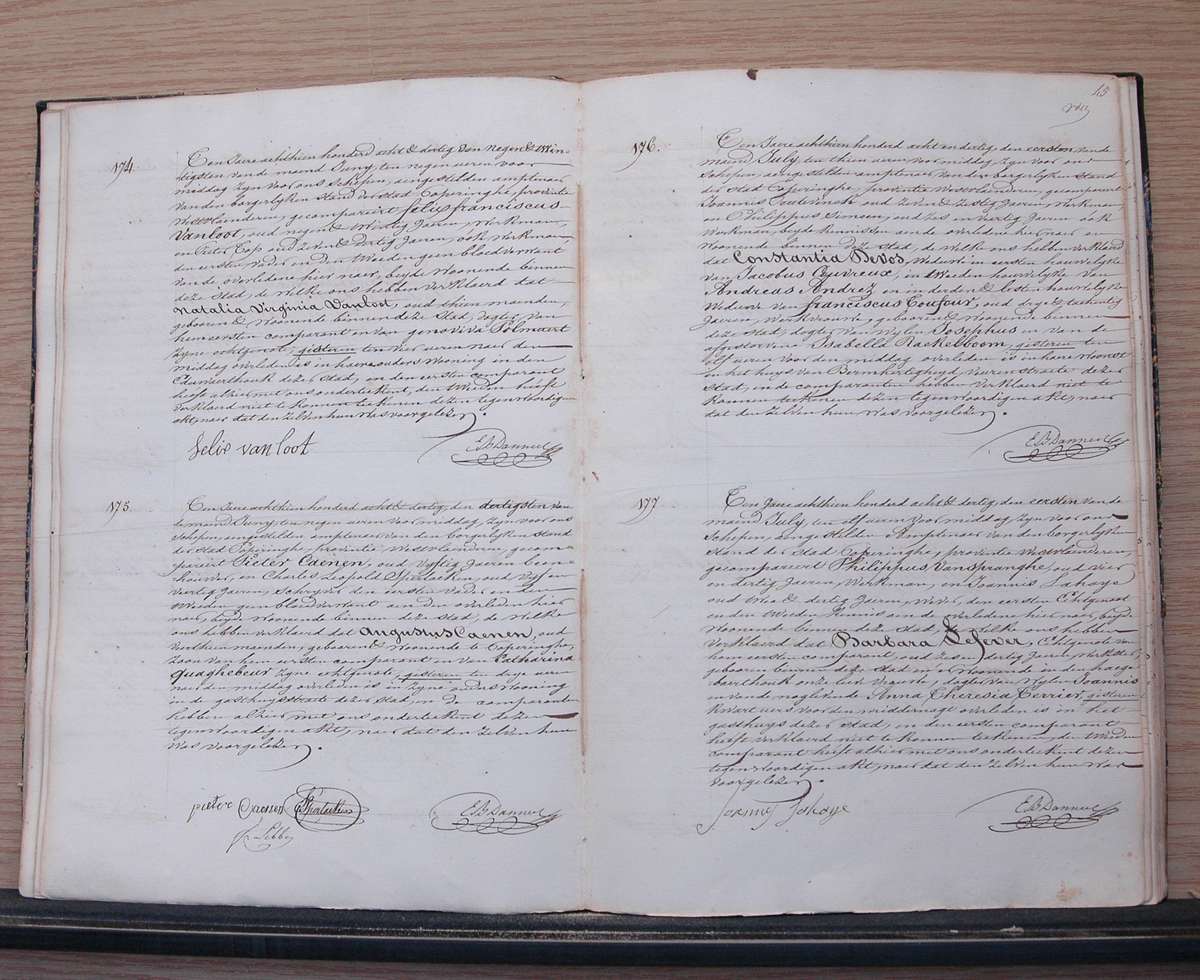 174
Een Jaere achthien honderd acht & dertig van negen & twin-
tigsten van de maend Juny, ten negen ueren voor
middag zyn voor ons Schepen, aengestelden amptenaer
van den borgerlyken Stand der stad Poperinghe, provintie
Westvlaenderen, gecompareert felix franciscus
Vanloot, oud negen & dertig Jaeren, werkman,
en Pieter Cop oud zeven & dertig Jaeren, ook werkman,
den eersten vader en den tweeden geen bloedverwant
van de overledene hier naer, beyde woonende binnen
deze stad, de welke ons hebben verklaerd dat
Natalia Virginia Vanloot, oud thien maenden,
geboren & woonende binnen deze stad, dogter van
hem eersten comparant en van genoviva
zyne echtgenot, gisteren ten vier ueren naer den
middag overleden is in haere ouders wooning in den
dezer stad, en den eersten comparant
heeft alhier met ons onderteekent, den tweeden heeft
verklaerd niet te konnen teeken dezen tegenwoordigen
akt, naer dat den zelven hun was voorgelezen.
felix vanloot
175
Een Jaere achthien honderd acht & dertig, den dertigsten van
de maend Juny, ten negen ueren voor middag, zyn voor ons
Schepen, aengestelden amptenaer van den borgerlyken Stand
der stad Poperinghe, Provintie Westvlaenderen, gecom-
pareert Pieter Caenen, oud vyftig Jaeren been-
houwer, en Charles Leopold oud vyf en
veertig Jaeren, Schryver den eersten vader en den
tweeden geen bloedverwant aen den overleden hier
naer, beyde woonende binnen de stad, de welke
ons hebben verklaerd dat Augustus Caenen, oud
maenden, geboren & woonende te Poperinghe,
zoon van hem eersten comparant en van Catharina
Quaghebeur zyne echtgenote, gisteren ten dryë ueren
naer den middag overleden is in zyne ouders wooning
in de gasthuysstraete dezer stad, en de comparanten
hebben alhier met ons onderteekent dezen
tegenwoordigen akt, naer dat den zelven hun
was voorgelezen.
pieter Caenen
15
176.
Een Jaere achthien honderd acht en dertig den eersten van de
maend July, ten thien ueren voor middag zyn voor ons
Schepen, aengestelden amptenaer van den borgerlyken Stand
der Stad Poperinghe, provintie Westvlaenderen, gecompareert
Joannes oud zeven & zestig Jaeren, Werkman,
en Philippus Simoen, oud zes en veertig Jaeren ook
Werkman, beyde kennissen aen de overleden hier naer en
woonende binnen deze stad, de welke ons hebben verklaerd
dat Constantia Devos, weduwe in eersten houwelyke
van Jacobus Couvreux, in tweeden houwelyke van
Andreas Andrez en in derden & lesten houwelyke
weduwe van franciscus Coufour, oud drye & tachentig
Jaeren, werkvrouw, geboren & woonende binnen
deze stad, dogter van wylen Josephus en van de
Isabelle Rackelboom, gisteren ten
elf ueren voor den middag overleden is in haere woonst
in het huys van Bernkertghuyd, veurenstraete dezer
Stad, en de comparanten hebben verklaerd niet te
konnen teekenen dezen tegenwoordigen akt, naer
dat den zelven hun was voorgelezen.
177
Een Jaere achthien honderd acht & dertig, den eersten van de
maend July, ten elf ueren voor middag zyn voor ons
Schepen, aengestelden Amptenaer van den borgerlyken
Stand der Stad Poperinghe, provintie Westvlaenderen,
gecompareert Philippus Vanspranghe, oud vier
en dertig Jaeren, Werkman, en Joannes Lahaye
oud twee & dertig Jaeren, wever, den eersten Echtgenoot
en den tweeden kennis aen de overleden hier naer, beyde
woonende binnen deze stad, de welke ons hebben
verklaerd dat Barbara Lefever, Echtgenote van
den eersten comparant oud zeven & dertig Jaeren werkster,
geboren binnen deze stad en woonende in den
onze lieve vrouwe, dogter van wylen Joannes
en van de nog levende Anna Theresia Terrier, gisteren
kwart uers voor den middernagt overleden is in het
gasthuys dezer stad, en den eersten comparant
heeft verklaerd niet te konnen teekenen, de tweede
comparant heeft alhier met ons onderteekent dezen
tegenwoordigen akt, naer dat den zelven hun was
voorgelezen.